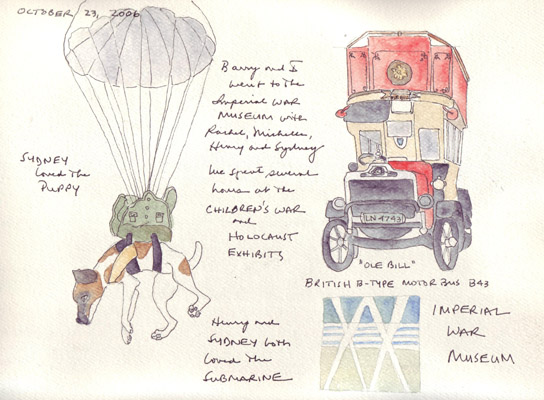 OCTOBER 23, 2006
Barry and I
went to the
Imperial WAR
MUSEUM with
Rachel, Michelle,
Henry and Sydney
We spent several
hours at the
CHILDREN'S WAR
and
HOLOCAUST
EXHIBITS
SYDNEY
loved the
PUPPY
Henry and
SYDNEY both
loved the
SUBMARINE
LN 4743
"OLE BILL"
BRITISH B-TYPE MOTOR BUS B43
IMPERIAL
WAR
MUSEUM